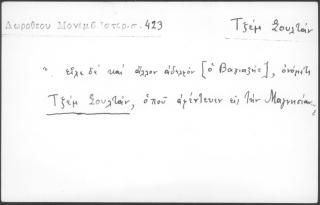 Δωροθέου Μονεμβ. Ἱστορ. σ. 423
Τζέμ Σουλτάν
". εἶχε δέ καί ἄλλον ἀδελφόν [ὁ Βαγιαζήτ], ὀνόματι
Τζέμ Σουλτάν, ὁποῦ ἀφέντευεν εἰς τήν Μαγνησίαν